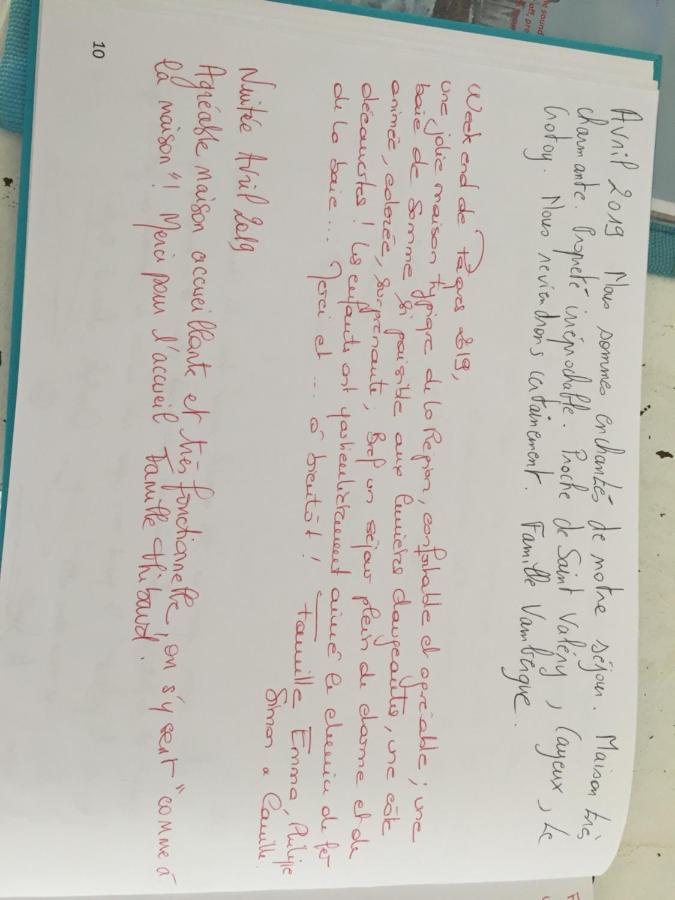 Avril 2019 Nous sommes enchantés de notre séjour. Maison très
charmante. Propreté irréprochable. Proche de Saint Valéry, Cayeux, Le
Crotoy. Nous reviendrons certainement. Famille Vambergue.
Week end de Pâques 2019,
une jolie maison typique de la Région, confortable et agréable ; une
baie de Somme si paisible aux lumières changeantes, une côte
animée, colorée, surprenante, Bref un séjour plein de charme et de
découvertes ! Les enfants ont particulièrement aimé le chemin de fer
de la baie... Merci et ... à bientôt ! Famille Emma, Philippe
Simon & Camille.
Nuitée Avril 2019
Agréable maison accueillante et très fonctionnelle, on s'y sent "comme à
la maison" ! Merci pour l'accueil Famille Thibaud.
10
the sound